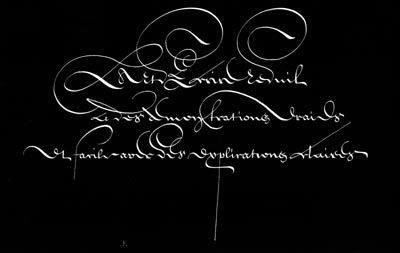 L'Art Ecrire reduit
a des demonstrations vraies
et facile avec des explications claires